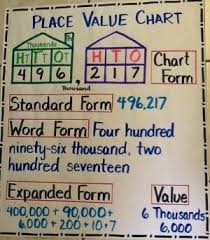 PLACE VALUE CHART
Thousands
H T T O T H T O
4 9 6 , 2 1 7
Thousand
Chart Form
Standard Form 496,217
Word Form Four hundred
ninety-six thousand, two
hundred seventeen
Expanded Form Value
400,000 + 90,000 + 6 Thousands
6,000 + 200 + 10 + 7 6,000